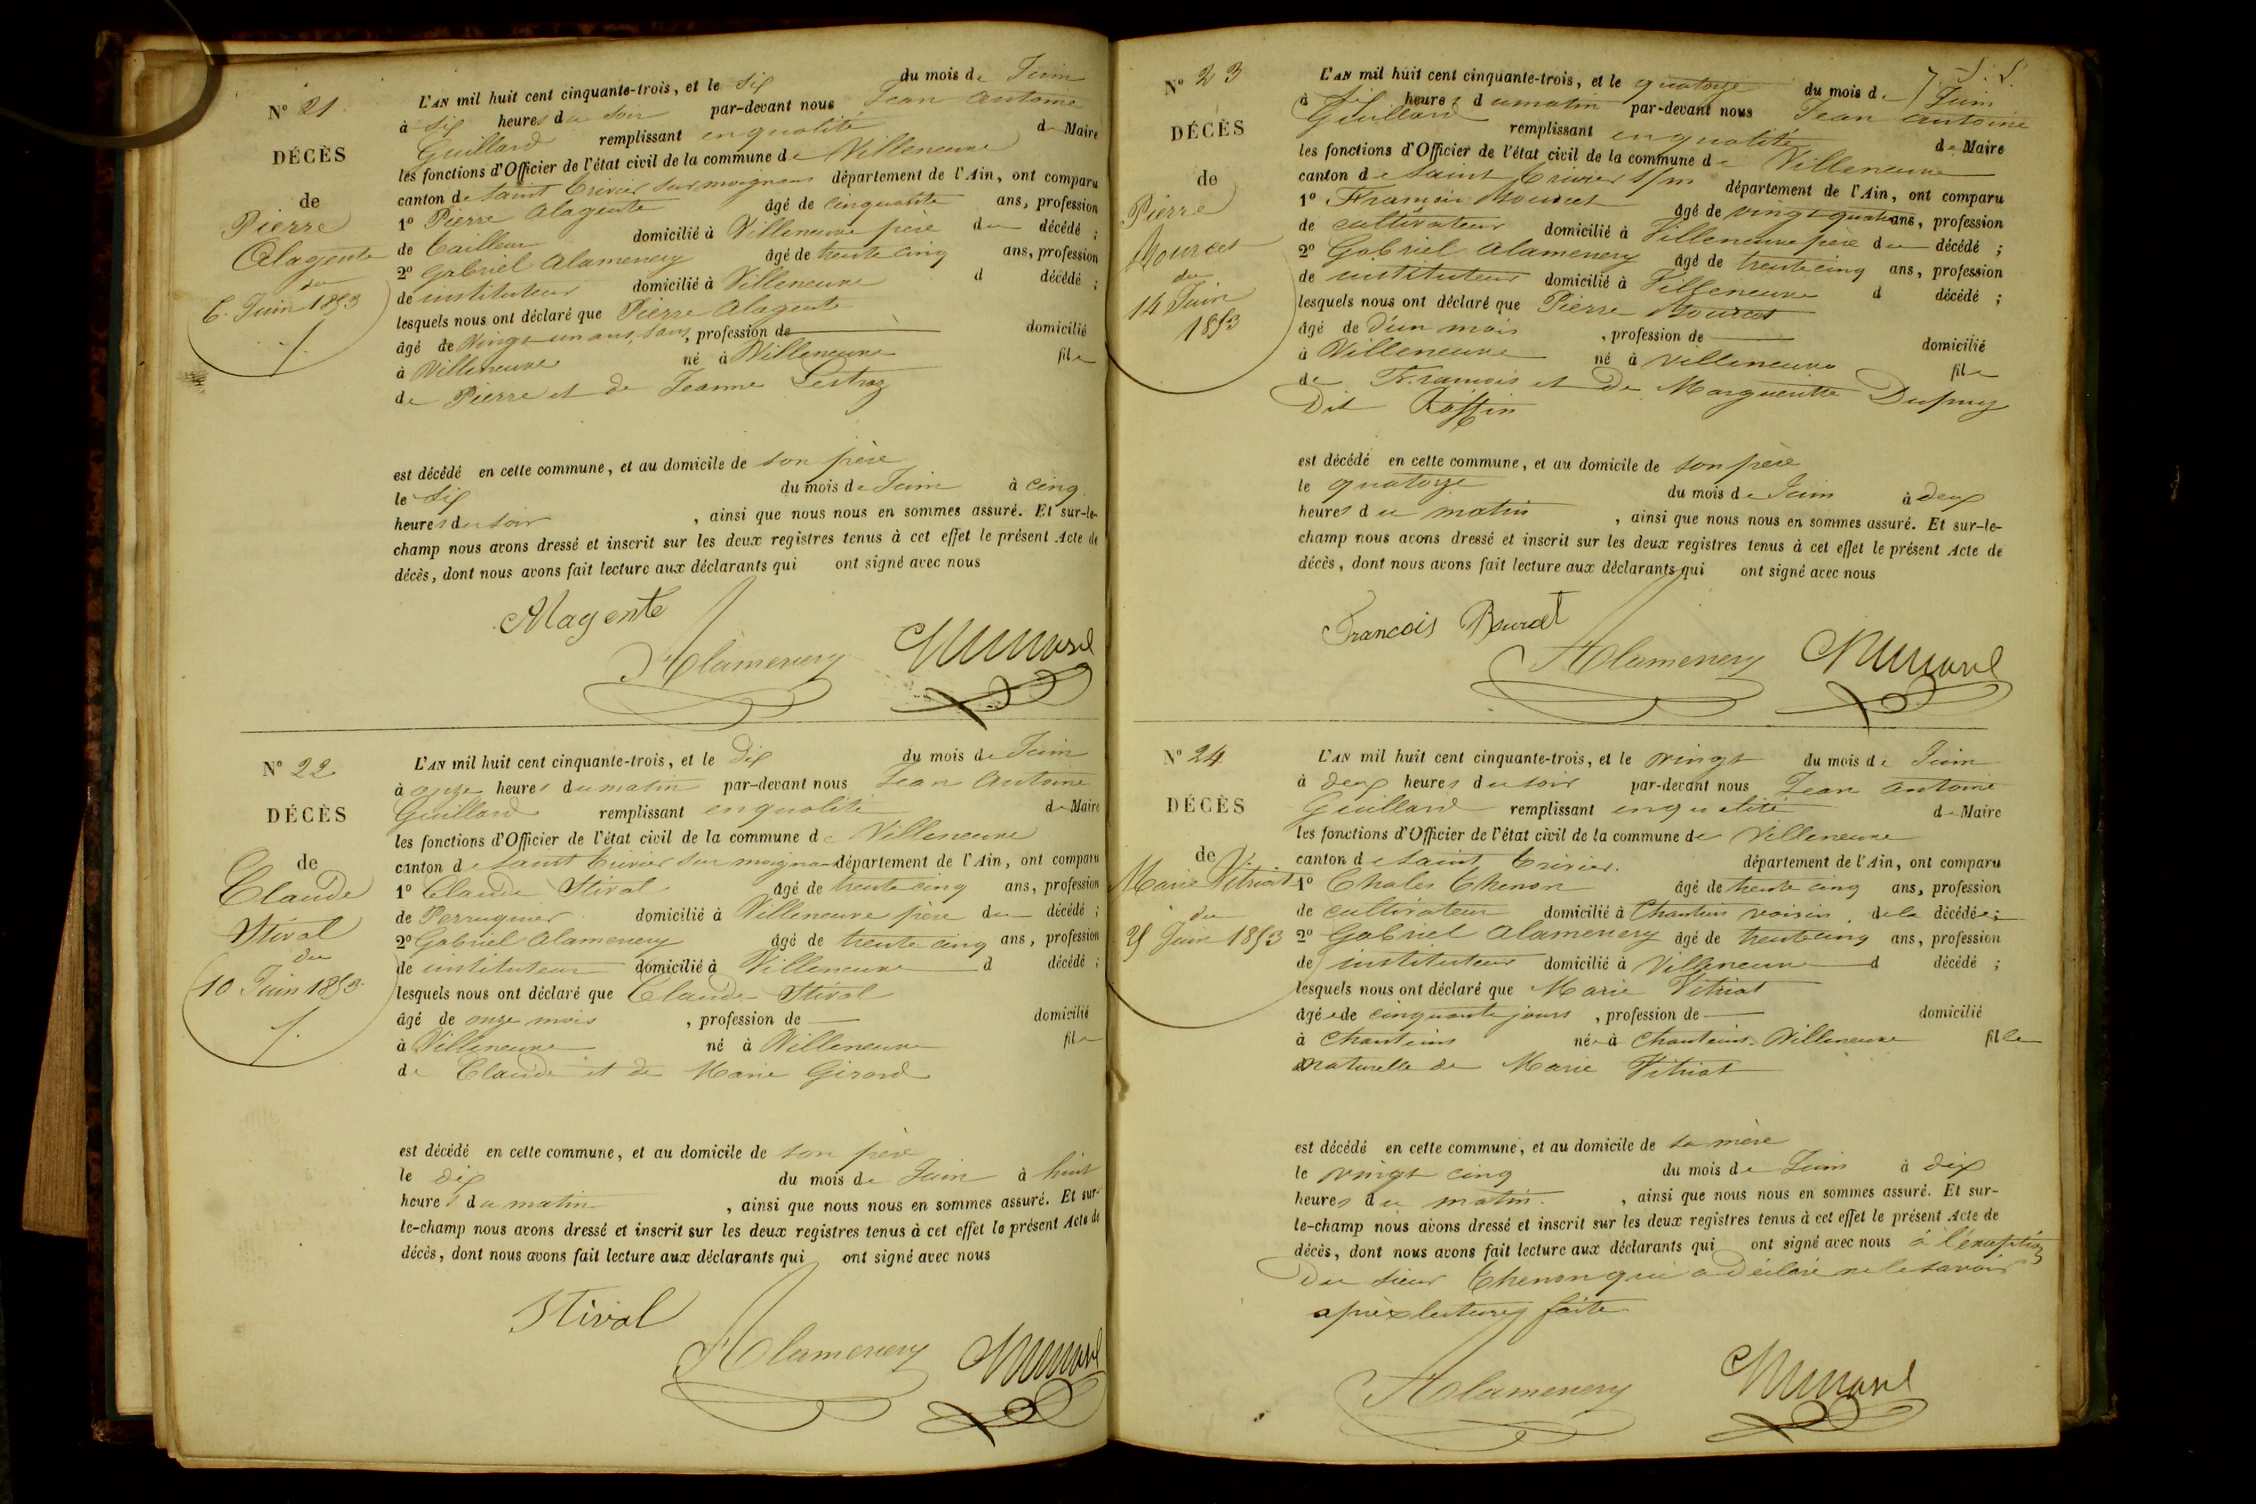 N° 21.
DÉCÈS
de
Pierre
Alagente
du
6 Juin 1853
L'AN mil huit cent cinquante-trois, et le six du mois de Juin
à six heures du soir par-devant nous Jean Antoine
Guillard remplissant en qualité de Maire
les fonctions d'Officier de l'état civil de la commune de Villeneuve
canton de Saint Trivier sur moignans département de l'Ain, ont comparu
1° Pierre Alagente âgé de cinquante ans, profession
de Tailleur domicilié à Villeneuve père du décédé ;
2° Gabriel Alamenery âgé de trente cinq ans, profession
de instituteur domicilié à Villeneuve d décédé ;
lesquels nous ont déclaré que Pierre Alagente
âgé de Vingt un ans, profession de domicilié
à Villeneuve né à Villeneuve fils
de Pierre et de Jeanne Lestraz
est décédé en cette commune, et au domicile de son père
le six du mois de Juin à cinq
heures du soir , ainsi que nous nous en sommes assuré. Et sur-le-
champ nous avons dressé et inscrit sur les deux registres tenus à cet effet le présent Acte de
décès, dont nous avons fait lecture aux déclarants qui ont signé avec nous
Alagente
Alamenery
N° 22
DÉCÈS
de
Claude
Stival
du
10 Juin 1853
L'AN mil huit cent cinquante-trois, et le dix du mois de Juin
à onze heures du matin par-devant nous Jean Antoine
Guillard remplissant en qualité de Maire
les fonctions d'Officier de l'état civil de la commune de Villeneuve
canton de Saint Trivier sur moignans département de l'Ain, ont comparu
1° Claude Stival âgé de trente cinq ans, profession
de Perruquier domicilié à Villeneuve père du décédé ;
2° Gabriel Alamenery âgé de trente cinq ans, profession
de instituteur domicilié à Villeneuve d décédé ;
lesquels nous ont déclaré que Claude Stival
âgé de onze mois , profession de domicilié
à Villeneuve né à Villeneuve fils
de Claude et de Marie Girard
est décédé en cette commune, et au domicile de son père
le dix du mois de Juin à huit
heures du matin , ainsi que nous nous en sommes assuré. Et sur-
le-champ nous avons dressé et inscrit sur les deux registres tenus à cet effet le présent Acte de
décès, dont nous avons fait lecture aux déclarants qui ont signé avec nous
Stival
Alamenery
N° 23
DÉCÈS
de
Pierre
Bourcet
du
14 Juin
1853
L'AN mil huit cent cinquante-trois, et le quatorze du mois de Juin
à six heures du matin par-devant nous Jean Antoine
Guillard remplissant en qualité de Maire
les fonctions d'Officier de l'état civil de la commune de Villeneuve
canton de Saint Trivier s/m département de l'Ain, ont comparu
1° François Bourcet âgé de vingt quatre ans, profession
de cultivateur domicilié à Villeneuve père du décédé ;
2° Gabriel Alamenery âgé de trente cinq ans, profession
de instituteur domicilié à Villeneuve d décédé ;
lesquels nous ont déclaré que Pierre Bourcet
âgé de D'un mois , profession de domicilié
à Villeneuve né à Villeneuve fils
de François et de Margueritte Dupuy
Dit Raffin
est décédé en cette commune, et au domicile de son père
le quatorze du mois de Juin à deux
heures du matin , ainsi que nous nous en sommes assuré. Et sur-le-
champ nous avons dressé et inscrit sur les deux registres tenus à cet effet le présent Acte de
décès, dont nous avons fait lecture aux déclarants qui ont signé avec nous
Francois Bourcet
Alamenery
N° 24
DÉCÈS
de
Marie Vitriat
du
25 Juin 1853
L'AN mil huit cent cinquante-trois, et le vingt du mois de Juin
à deux heures du soir par-devant nous Jean Antoine
Guillard remplissant en qualité de Maire
les fonctions d'Officier de l'état civil de la commune de Villeneuve
canton de Saint Trivier. département de l'Ain, ont comparu
1° Chales Thenon âgé de trente cinq ans, profession
de cultivateur domicilié à Chanteins voisin de la décédée ;
2° Gabriel Alamenery âgé de trente cinq ans, profession
de instituteur domicilié à Villeneuve d décédé ;
lesquels nous ont déclaré que Marie Vitriat
âgée de cinquante jours , profession de domicilié
à Chanteins née à Chanteins Villeneuve fille
naturelle de Marie Vitriat
est décédé en cette commune, et au domicile de sa mère
le vingt cinq du mois de Juin à dix
heures du matin. , ainsi que nous nous en sommes assuré. Et sur-
le-champ nous avons dressé et inscrit sur les deux registres tenus à cet effet le présent Acte de
décès, dont nous avons fait lecture aux déclarants qui ont signé avec nous à l'exception
Du sieur Thenon qui a déclaré ne le savoir
après lecture faite
Alamenery